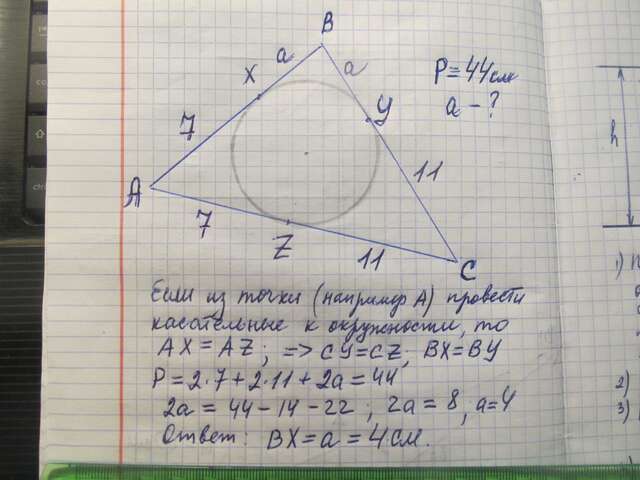 B
a
a
X
P = 44 см
a - ?
У
7
11
h
A
7
Z
11
C
Если из точки (например А) провести
касательные к окружности, то
AX = AZ; => CY = CZ; BX = BY
P = 2·7 + 2·11 + 2a = 44
2a = 44 - 14 - 22; 2a = 8, a = 4
Ответ: BX = a = 4 см.
1)
2)
3)